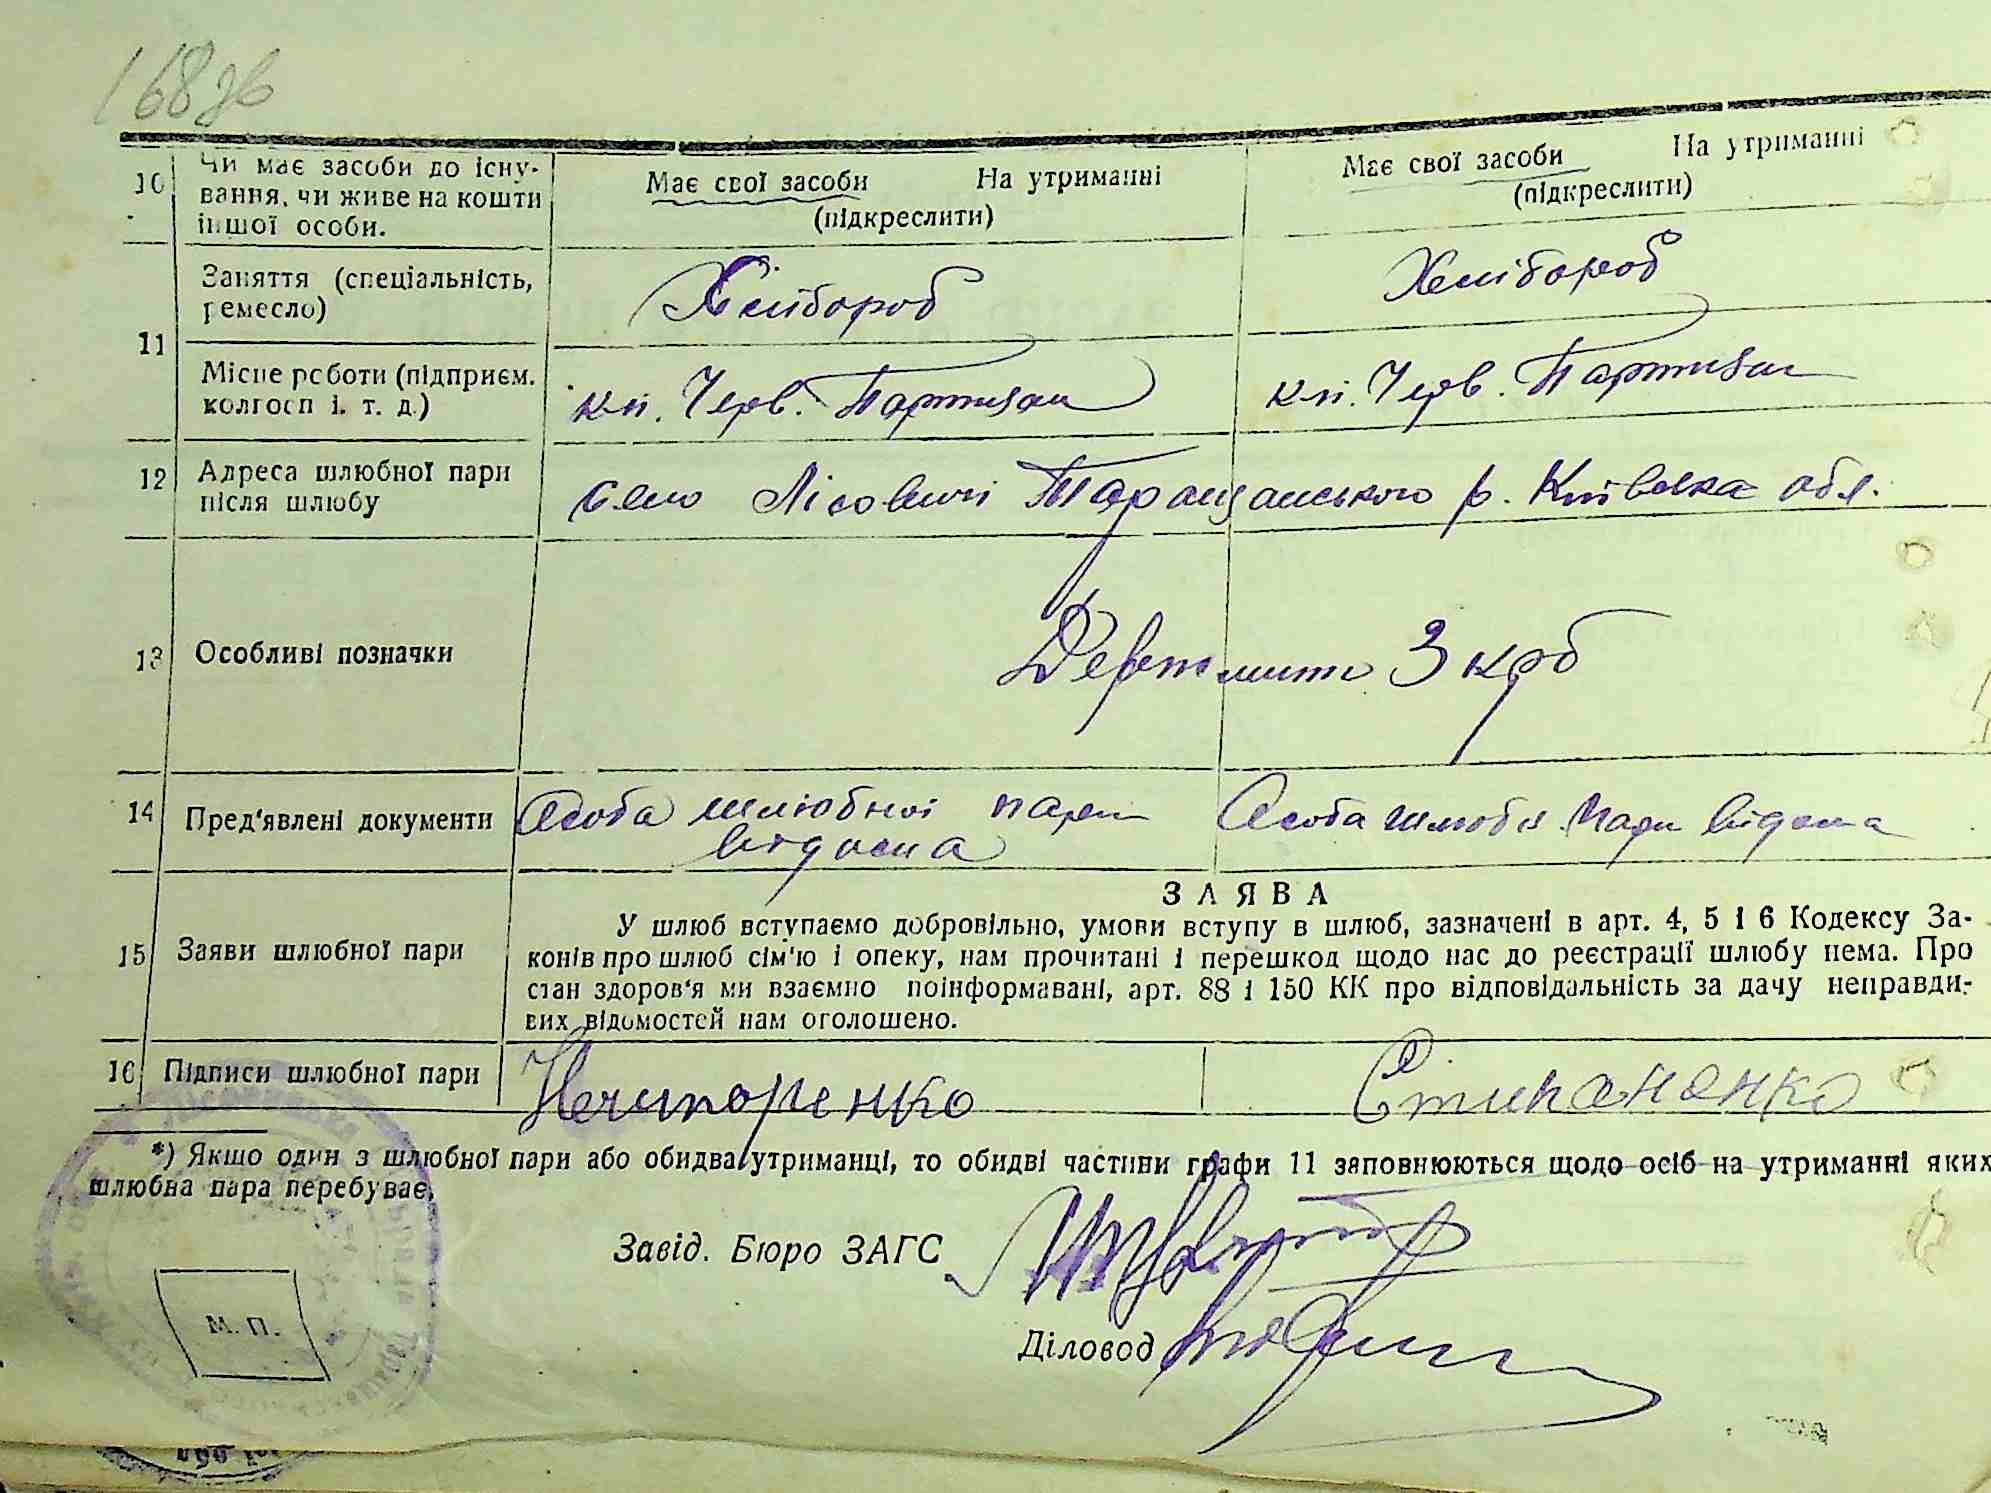 168 зв
10 Чи має засоби до існу-
вання, чи живе на кошти
іншої особи.
Має свої засоби На утриманні
(підкреслити)
Має свої засоби На утриманні
(підкреслити)
11 Заняття (спеціальність,
ремесло)
Хлібороб
Хлібороб
Місце роботи (підприєм.
колгосп і. т. д.)
кп. Черв. Партизан
кп. Черв. Партизан
12 Адреса шлюбної пари
після шлюбу
село Лісовичі Таращанського р. Київська обл.
13 Особливі позначки
Держмито 3 крб
14 Пред'явлені документи
Особа шлюбної пари
відома
Особа шлюбн. пари відома
15 Заяви шлюбної пари
ЗАЯВА
У шлюб вступаємо добровільно, умови вступу в шлюб, зазначені в арт. 4, 5 і 6 Кодексу За-
конів про шлюб сім'ю і опеку, нам прочитані і перешкод щодо нас до реєстрації шлюбу нема. Про
стан здоров'я ми взаємно поінформавані, арт. 88 і 150 КК про відповідальність за дачу неправди-
вих відомостей нам оголошено.
16 Підписи шлюбної пари
Нечипоренко
Стипаненко
*) Якщо один з шлюбної пари або обидва утриманці, то обидві частини графи 11 заповнюються щодо осіб на утриманні яких
шлюбна пара перебуває.
Завід. Бюро ЗАГС
Діловод
М. П.